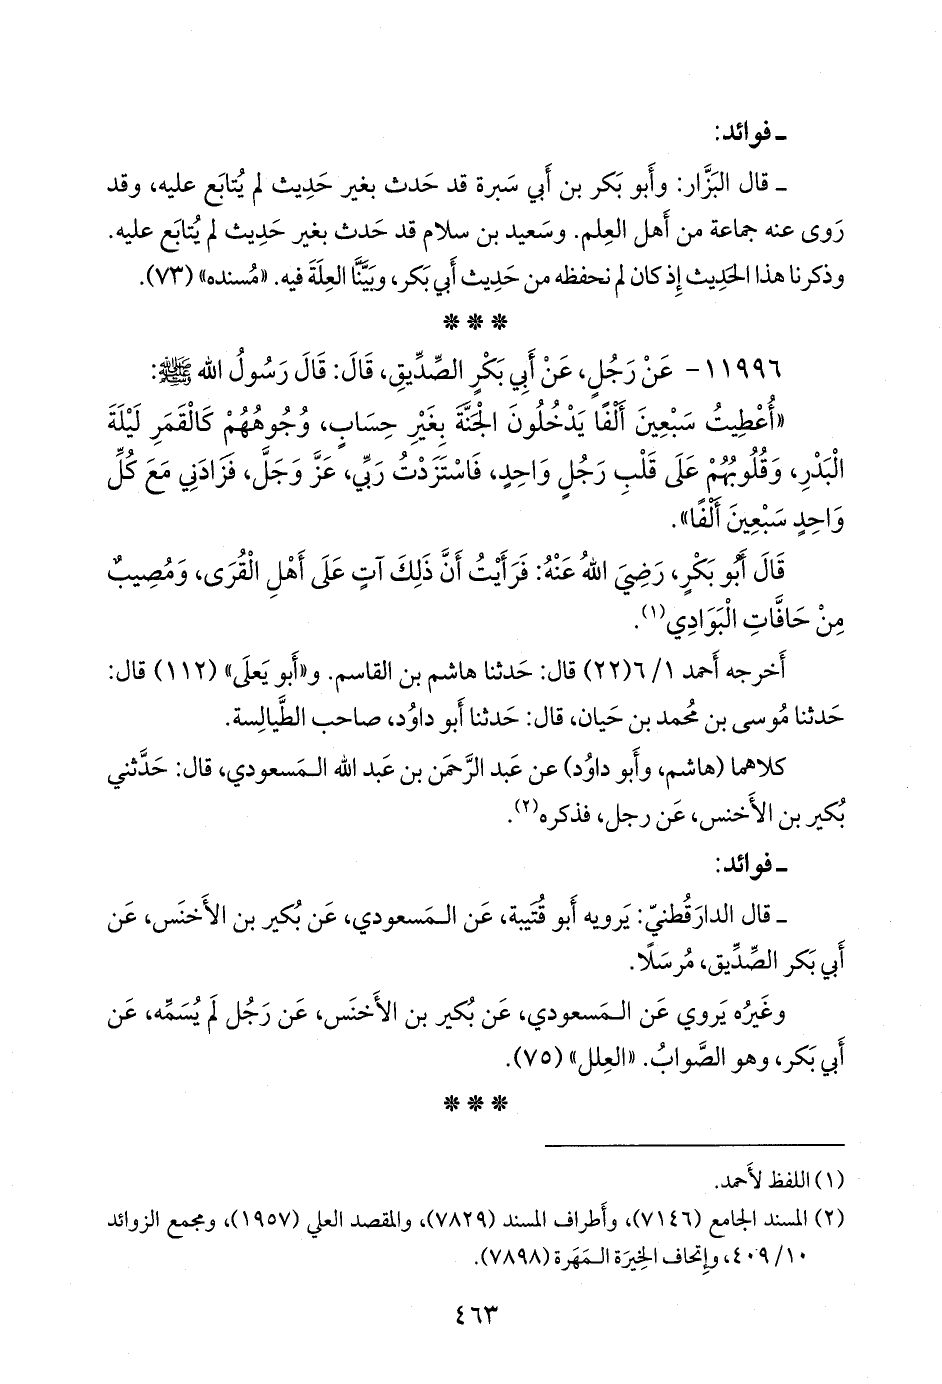 ـ فوائد:
ـ قال البَزَّار: وأَبو بَكر بن أَبي سَبرة قد حَدث بغير حَدِيث لم يُتابَع عليه، وقد
رَوى عنه جماعة من أَهل العِلم. وسَعيد بن سلام قد حَدث بغير حَدِيث لم يُتابَع عليه.
وذكرنا هذا الحَدِيث إِذ كان لم نحفظه من حَدِيث أَبي بَكر، وبَيَّنَّا العِلَة فيه. «مُسنده» (٧٣).
* * *
١١٩٩٦- عَنْ رَجُلٍ، عَنْ أَبِي بَكْرٍ الصِّدِّيقِ، قَالَ: قَالَ رَسُولُ الله ﷺ:
«أُعْطِيتُ سَبْعِينَ أَلْفًا يَدْخُلُونَ الجَنَّةَ بِغَيْرِ حِسَابٍ، وُجُوهُهُمْ كَالْقَمَرِ لَيْلَةَ
الْبَدْرِ، وَقُلُوبُهُمْ عَلَى قَلْبِ رَجُلٍ وَاحِدٍ، فَاسْتَزَدْتُ رَبِّي، عَزَّ وَجَلَّ، فَزَادَنِي مَعَ كُلِّ
وَاحِدٍ سَبْعِينَ أَلْفًا».
قَالَ أَبُو بَكْرٍ، رَضِيَ اللهُ عَنْهُ: فَرَأَيْتُ أَنَّ ذَلِكَ آتٍ عَلَى أَهْلِ الْقُرَى، وَمُصِيبٌ
مِنْ حَافَّاتِ الْبَوَادِي(١).
أَخرجه أَحمد ١/ ٦(٢٢) قال: حَدثنا هاشم بن القاسم. و«أَبو يَعلَى» (١١٢) قال:
حَدثنا مُوسى بن مُحمد بن حَيان، قال: حَدثنا أَبو داوُد، صاحب الطَّيالِسة.
كلاهما (هاشم، وأَبو داوُد) عن عَبد الرَّحمَن بن عَبد الله المَسعودي، قال: حَدَّثني
بُكير بن الأَخنس، عَن رجل، فذكره(٢).
ـ فوائد:
ـ قال الدارَقُطنيّ: يَرويه أَبو قُتَيبة، عَن المَسعودي، عَن بُكير بن الأَخنَس، عَن
أَبي بَكر الصِّدِّيق، مُرسَلًا.
وغَيرُه يَروي عَن المَسعودي، عَن بُكير بن الأَخنَس، عَن رَجُل لَم يُسَمِّه، عَن
أَبي بَكر، وهو الصَّوابُ. «العِلل» (٧٥).
* * *
(١) اللفظ لأَحمد.
(٢) المسند الجامع (٧١٤٦)، وأَطراف المسند (٧٨٢٩)، والمقصد العلي (١٩٥٧)، ومجمع الزوائد
١٠/ ٤٠٩، وإِتحاف الخِيرَة المَهَرة (٧٨٩٨).
٤٦٣